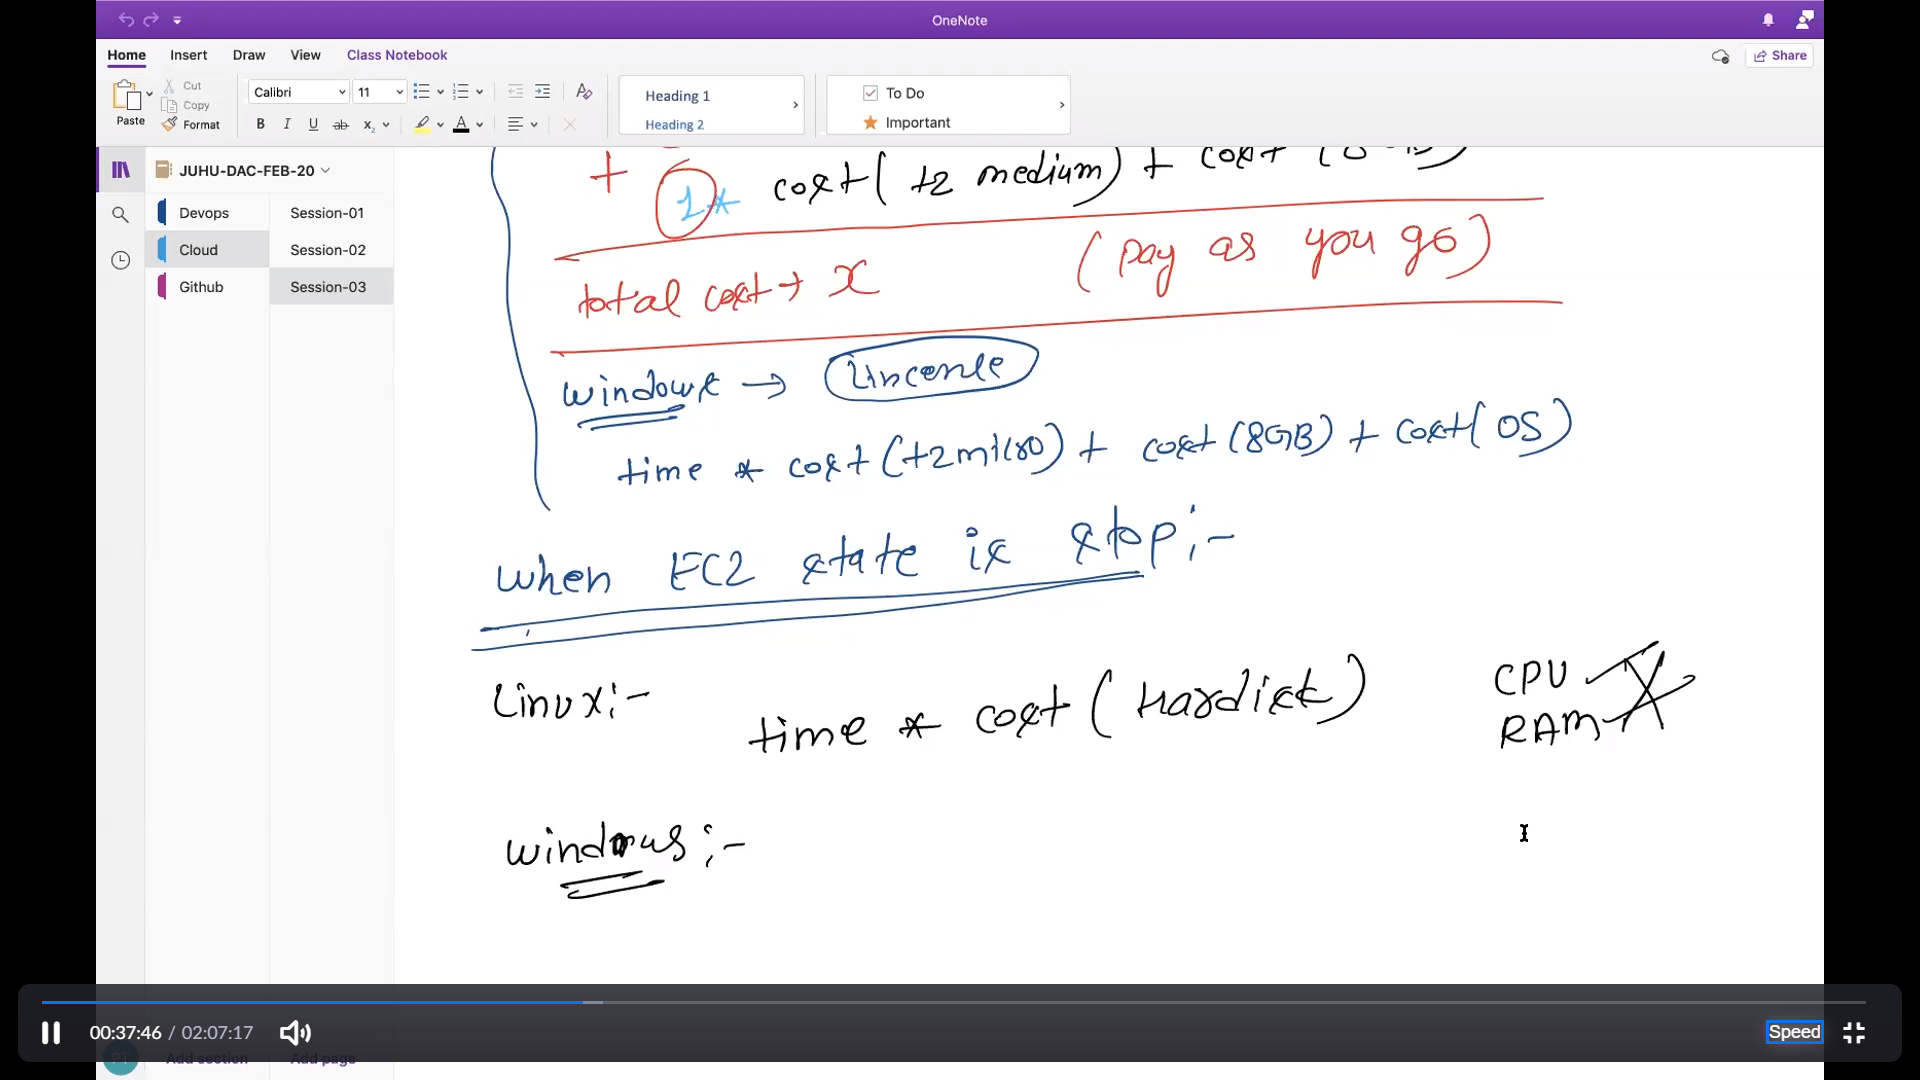 OneNote
Home Insert Draw View Class Notebook
Share
Paste
Cut
Copy
Format
Calibri 11
B I U ab x₂ A
Heading 1
Heading 2
To Do
Important
JUHU-DAC-FEB-20
Devops
Cloud
Github
Session-01
Session-02
Session-03
+ 1* cost( t2 medium) + cost
total cost → x (pay as you go)
windows → Lincense
time * cost (t2micro) + cost (8GB) + cost( OS)
when EC2 state is stop :-
Linux :-
time * cost ( Hardisk)
CPU
RAM
windows :-
00:37:46 / 02:07:17
Speed
PT
Add section
Add page